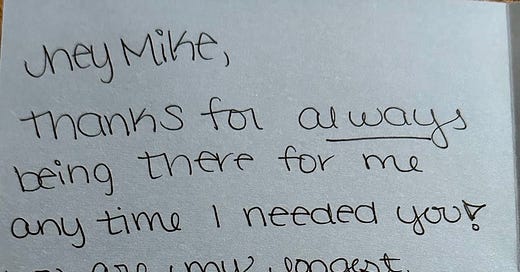 hey Mike,
thanks for always
being there for me
any time I needed you!
are my longest